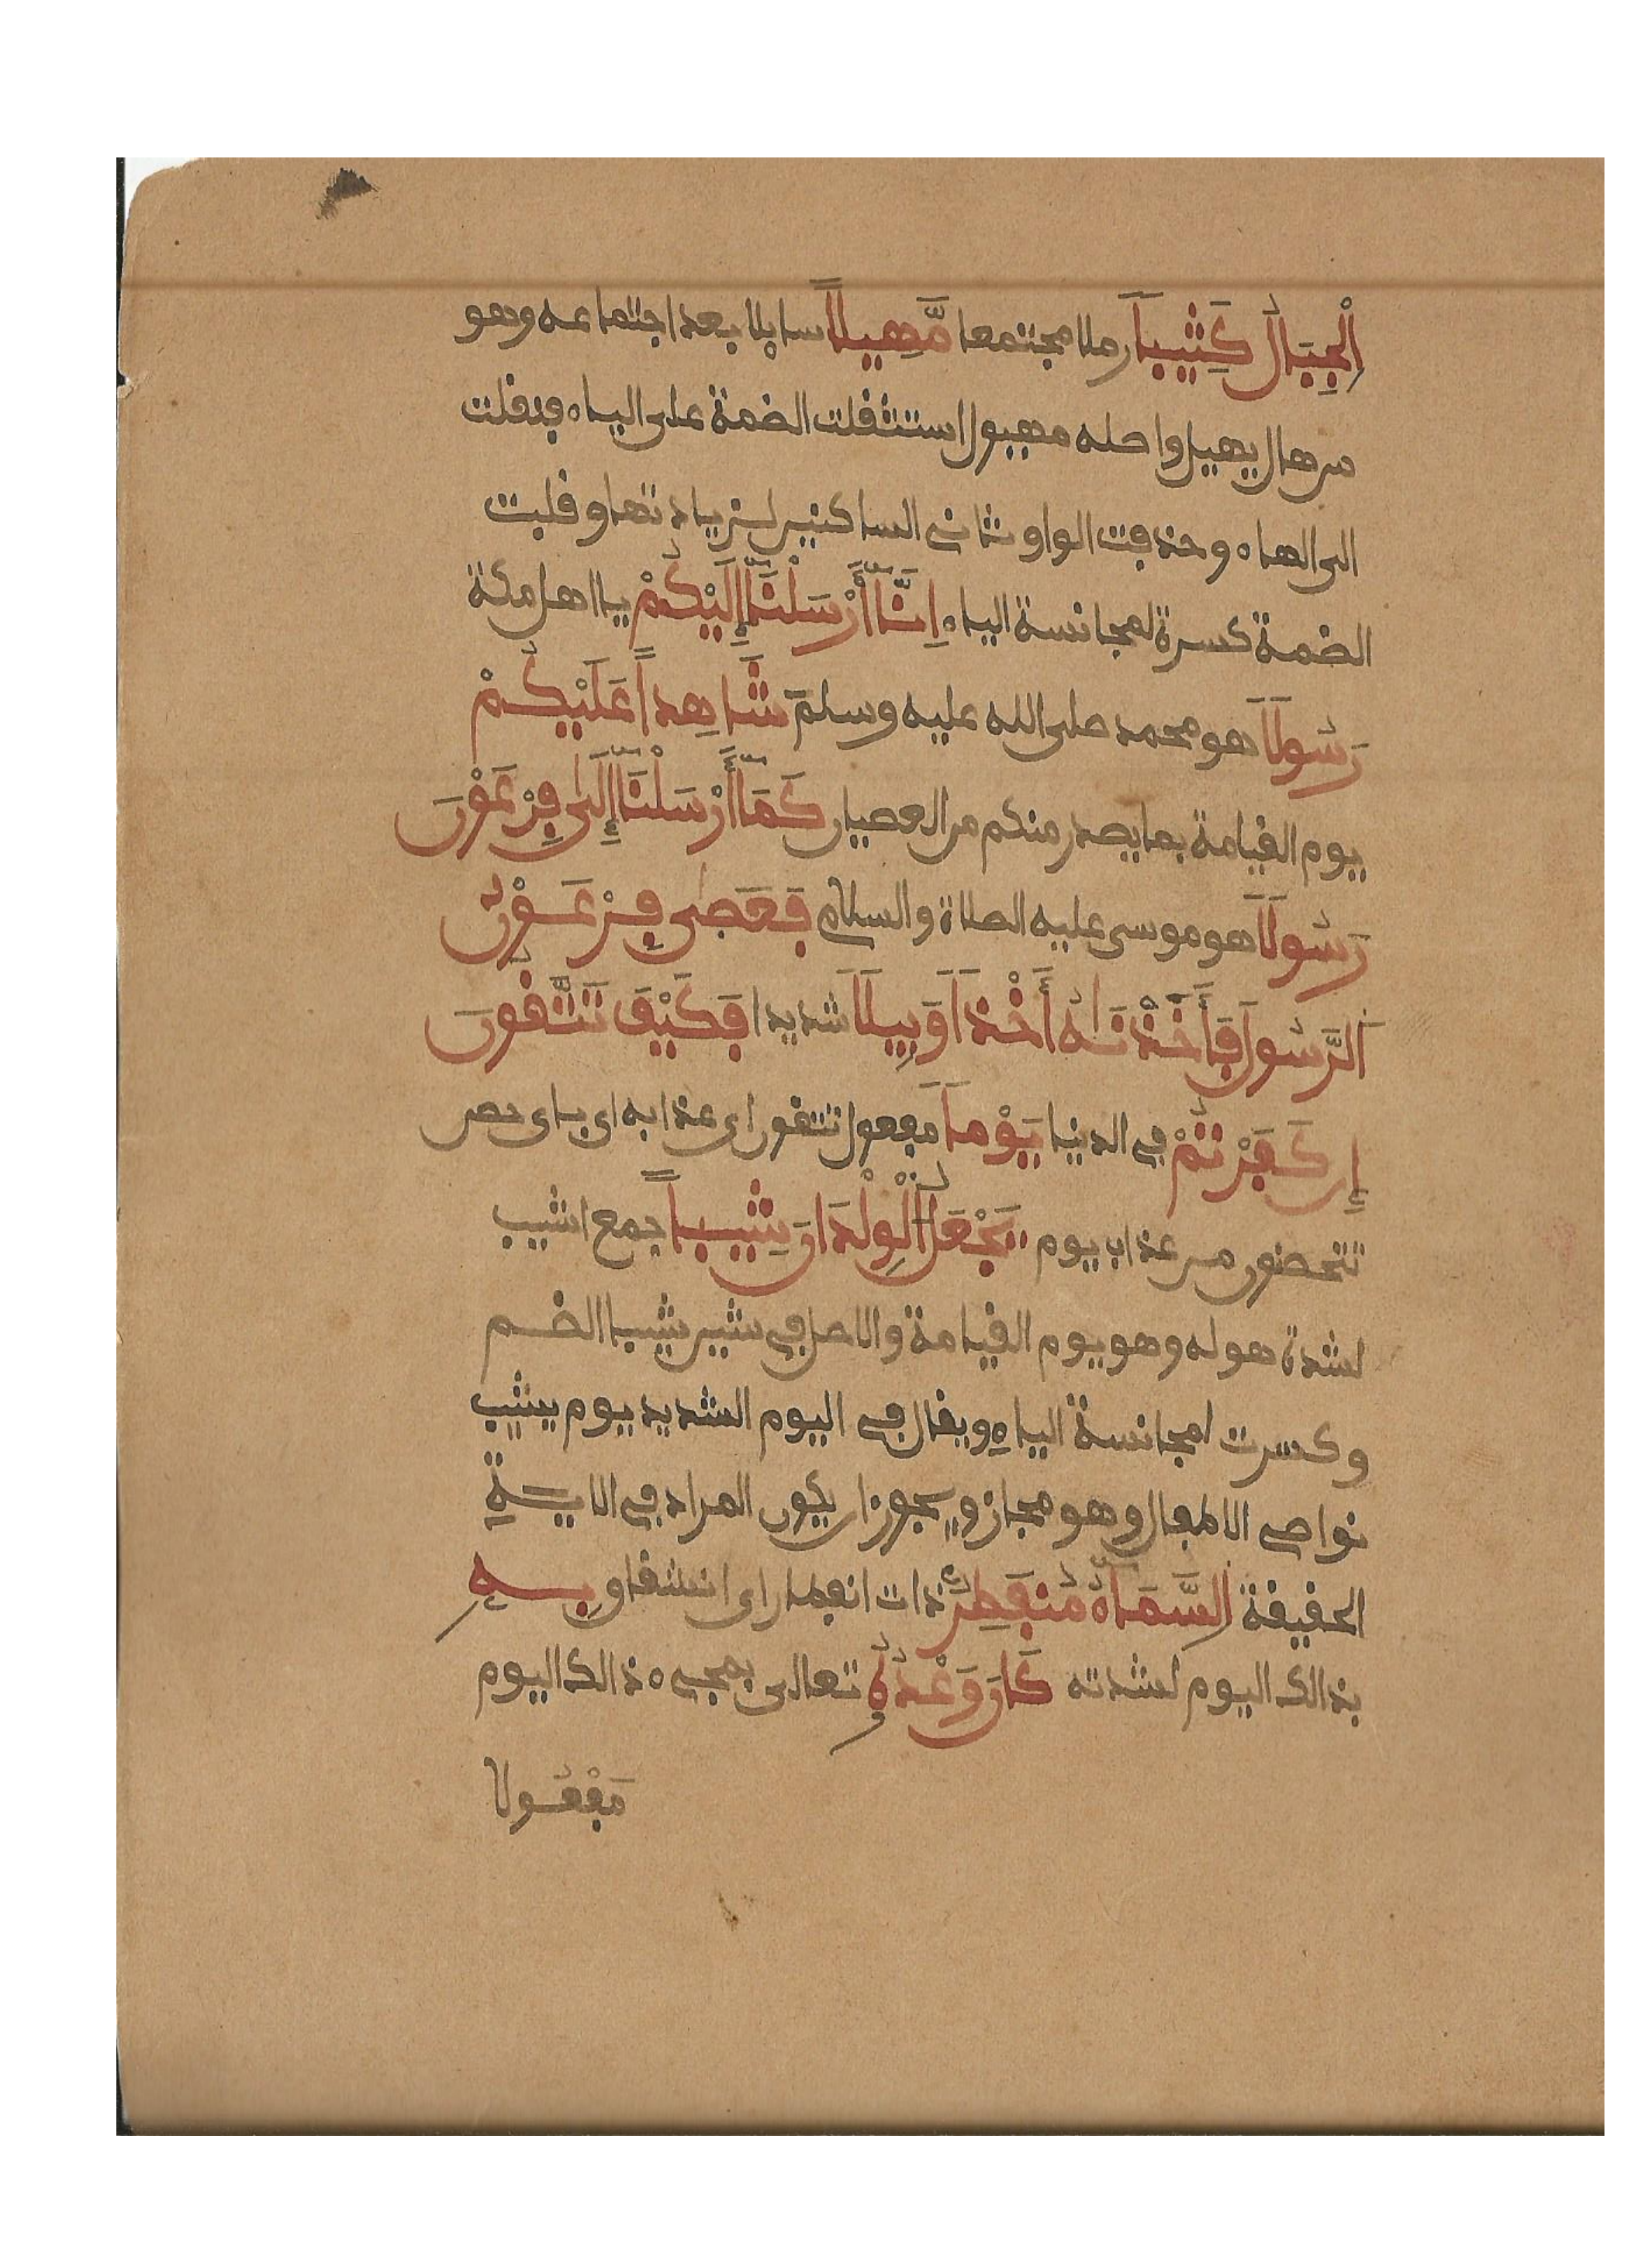 اَ۬لْجِبَالُ كَثِيباٗ رملا مجتمعا مَّهِيلاً سايلا بعد اجتماعه وهو
من هال يهيل واصله مهيول استثقلت الضمة على الياء فنقلت
الى الهاء وحذفت الواو ثاني الساكنين لزيادتها وقلبت
الضمة كسرة لمجانسة الياء اِنَّآ أَرْسَلْنَآ إِلَيْكُمْ يا اهل مكة
رَسُولاٗ هو محمد صلى الله عليه وسلم شَاهِداً عَلَيْكُمْ
يوم القيامة بما يصدر منكم من العصيان كَمَآ أَرْسَلْنَآ إِلَىٰ فِرْعَوْنَ
رَسُولاٗ هو موسى عليه الصلاة والسلام فَعَصَىٰ فِرْعَوْنُ
اَ۬لرَّسُولَ فَأَخَذْنَٰهُ أَخْذاٗ وَبِيلاٗ شديدا فَكَيْفَ تَتَّقُونَ
إِن كَفَرْتُمْ في الدنيا يَوْماٗ مفعول تتقون اي عذابه اي باي حصن
تتحصنون من عذاب يوم يَجْعَلُ اُ۬لْوِلْدَانَ شِيباً جمع اشيب
لشدة هوله وهو يوم القيامة والاصل في شين شيبا الضم
وكسرت لمجانسة الياء ويقال في اليوم الشديد يوم يشيب
نواصي الاطفال وهو مجاز ويجوز ان يكون المراد في الاية
الحقيقة اِ۬لسَّمَآءُ مُنفَطِرٌ ذات انفطار اي انشقاق بِهِ
بذالك اليوم لشدته كَانَ وَعْدُهُ تعالى بمجيء ذالك اليوم
مَفْعُولا